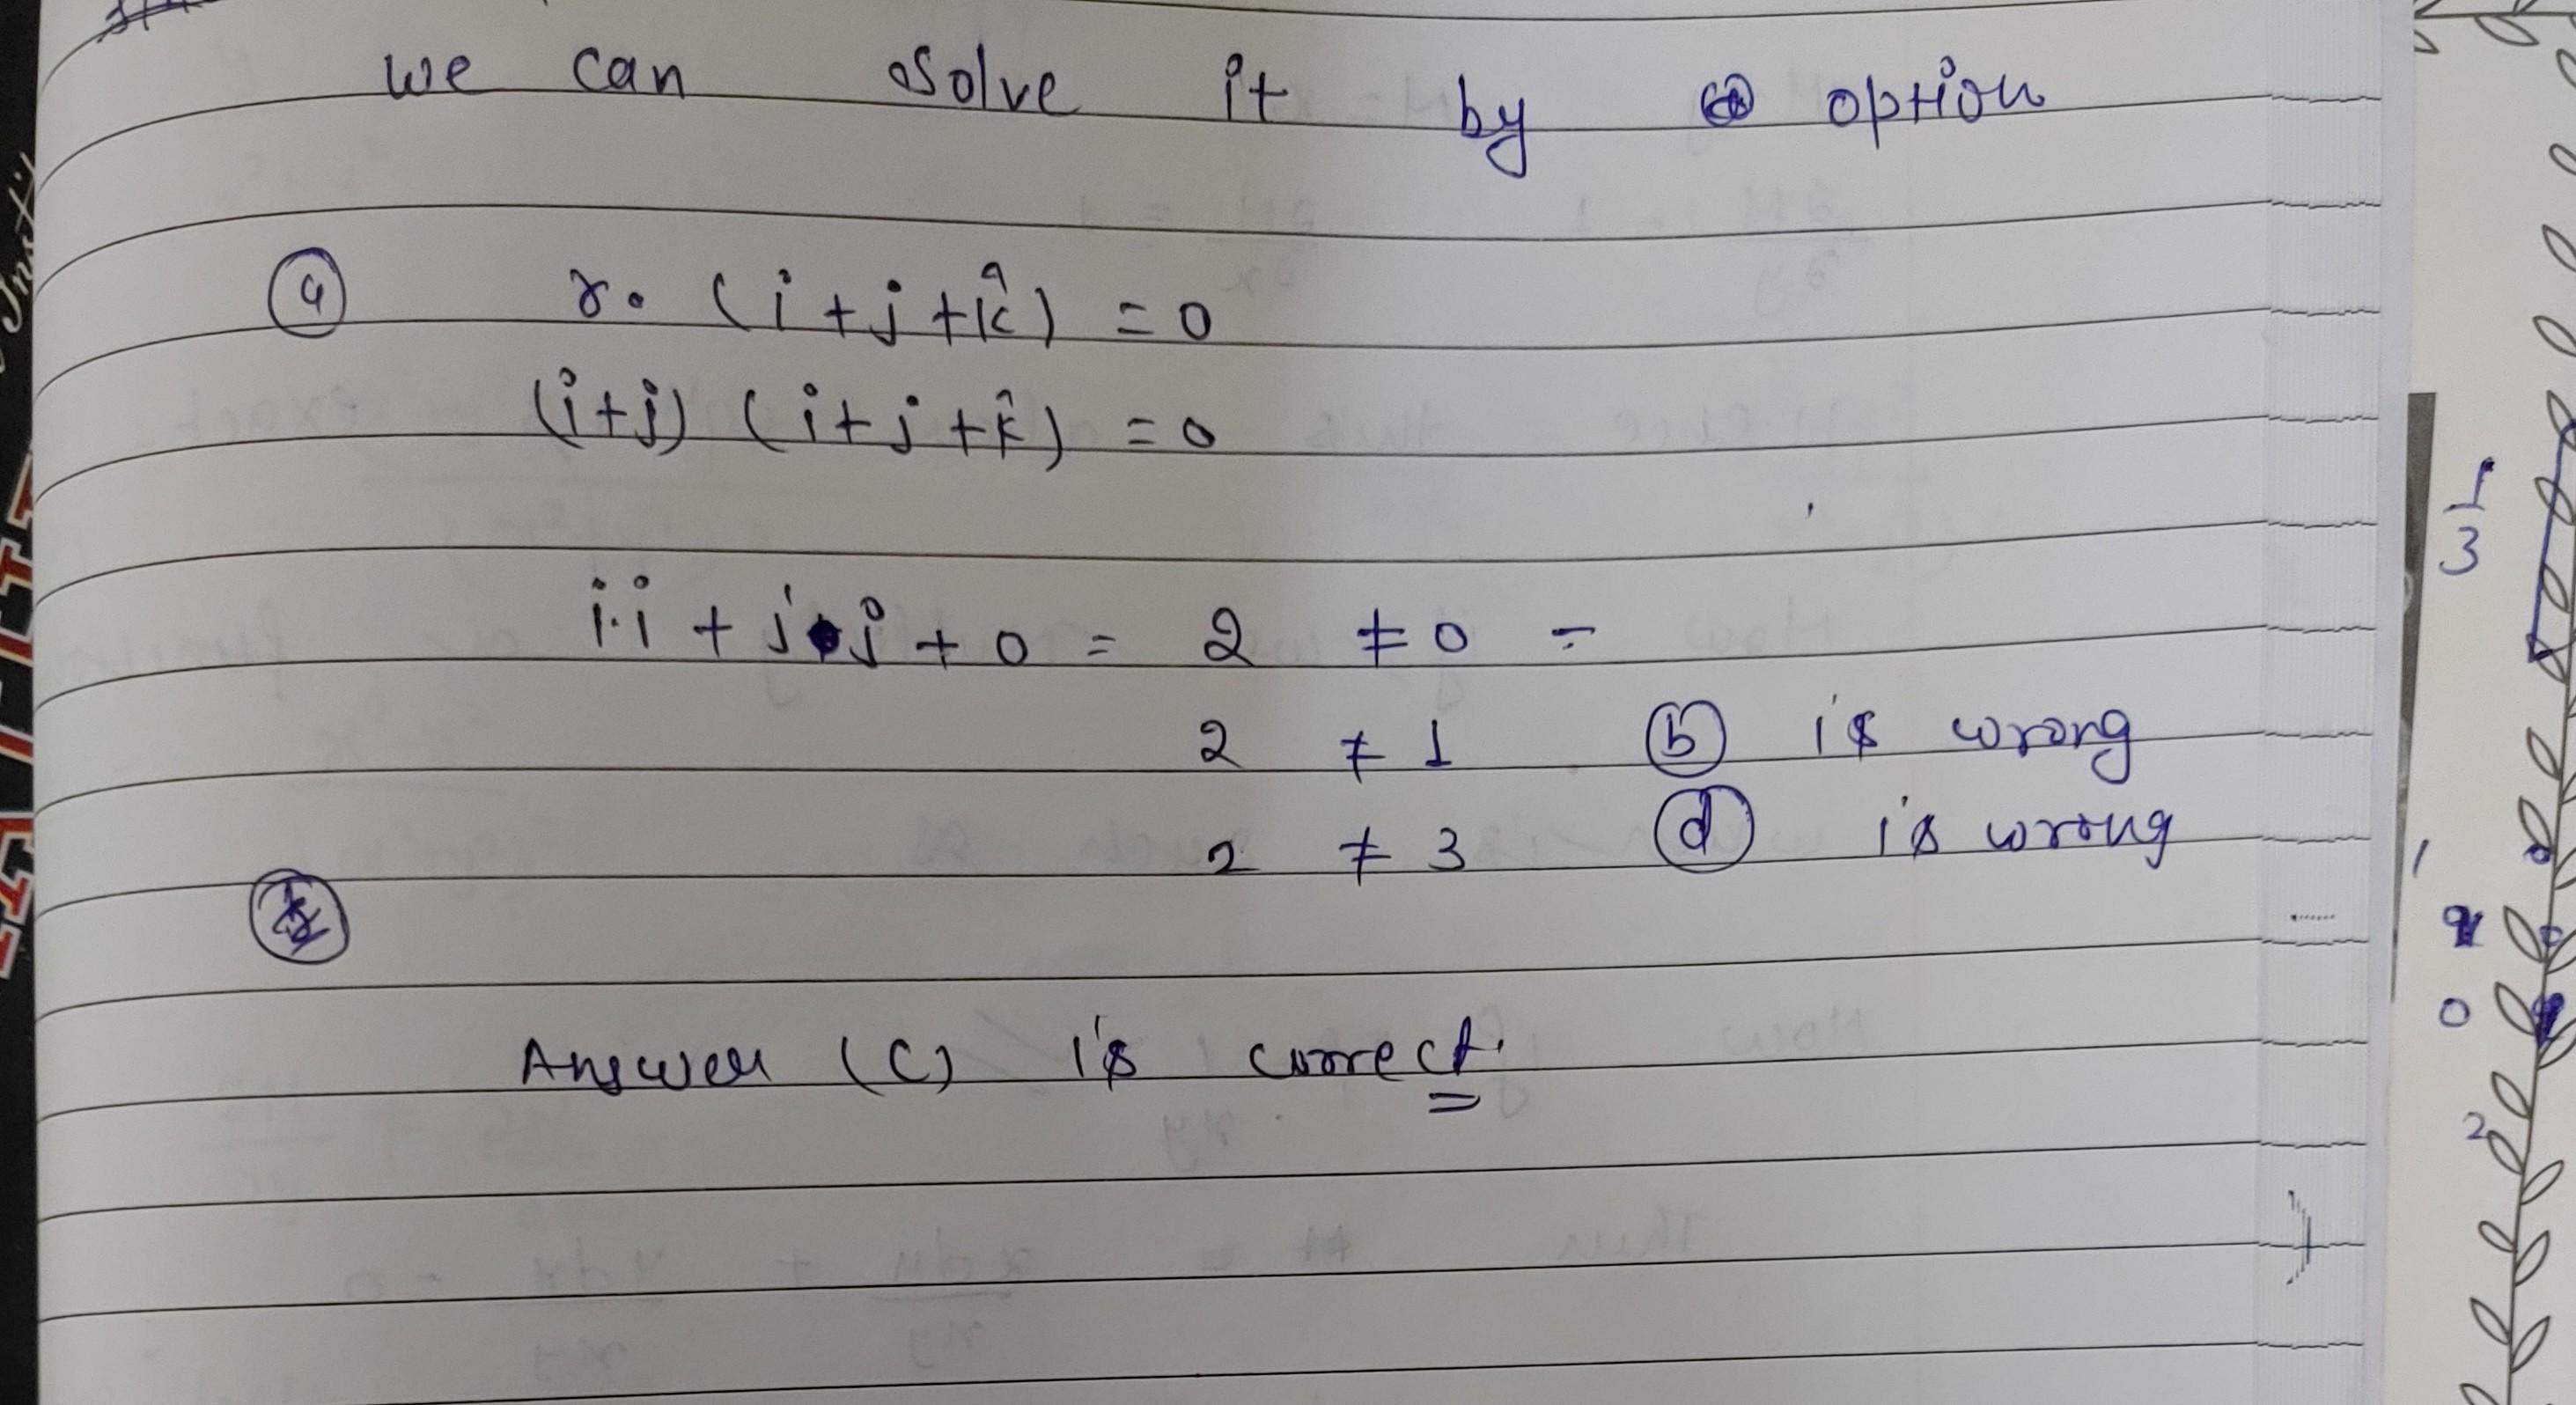 we can solve it by option
(a) r. (i + j + k̂) = 0
(i+j) (i + j + k̂) = 0
i.i + j.j + 0 = 2 ≠ 0 =
2 ≠ 1 (b) is wrong
2 ≠ 3 (d) is wrong
Answer (C) is correct.
1
3
0
2